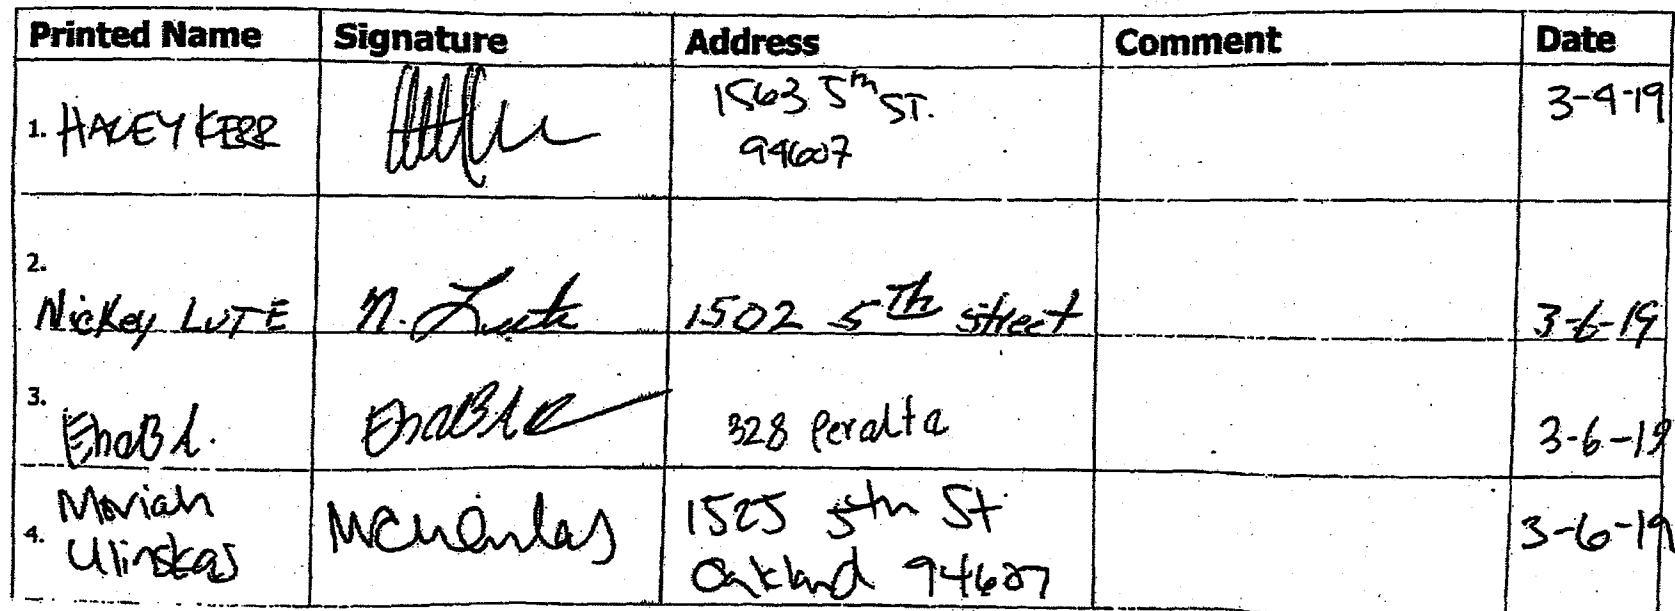 Printed Name Signature Address Comment Date
1. HALEY KERR 1563 5th ST. 94607 3-4-19
2. Nickey LUTE N. Lute 1502 5Th street 3-6-19
3. 328 Peralta 3-6-19
4. Moriah Ulinskas 1525 5th St Oakland 94607 3-6-19